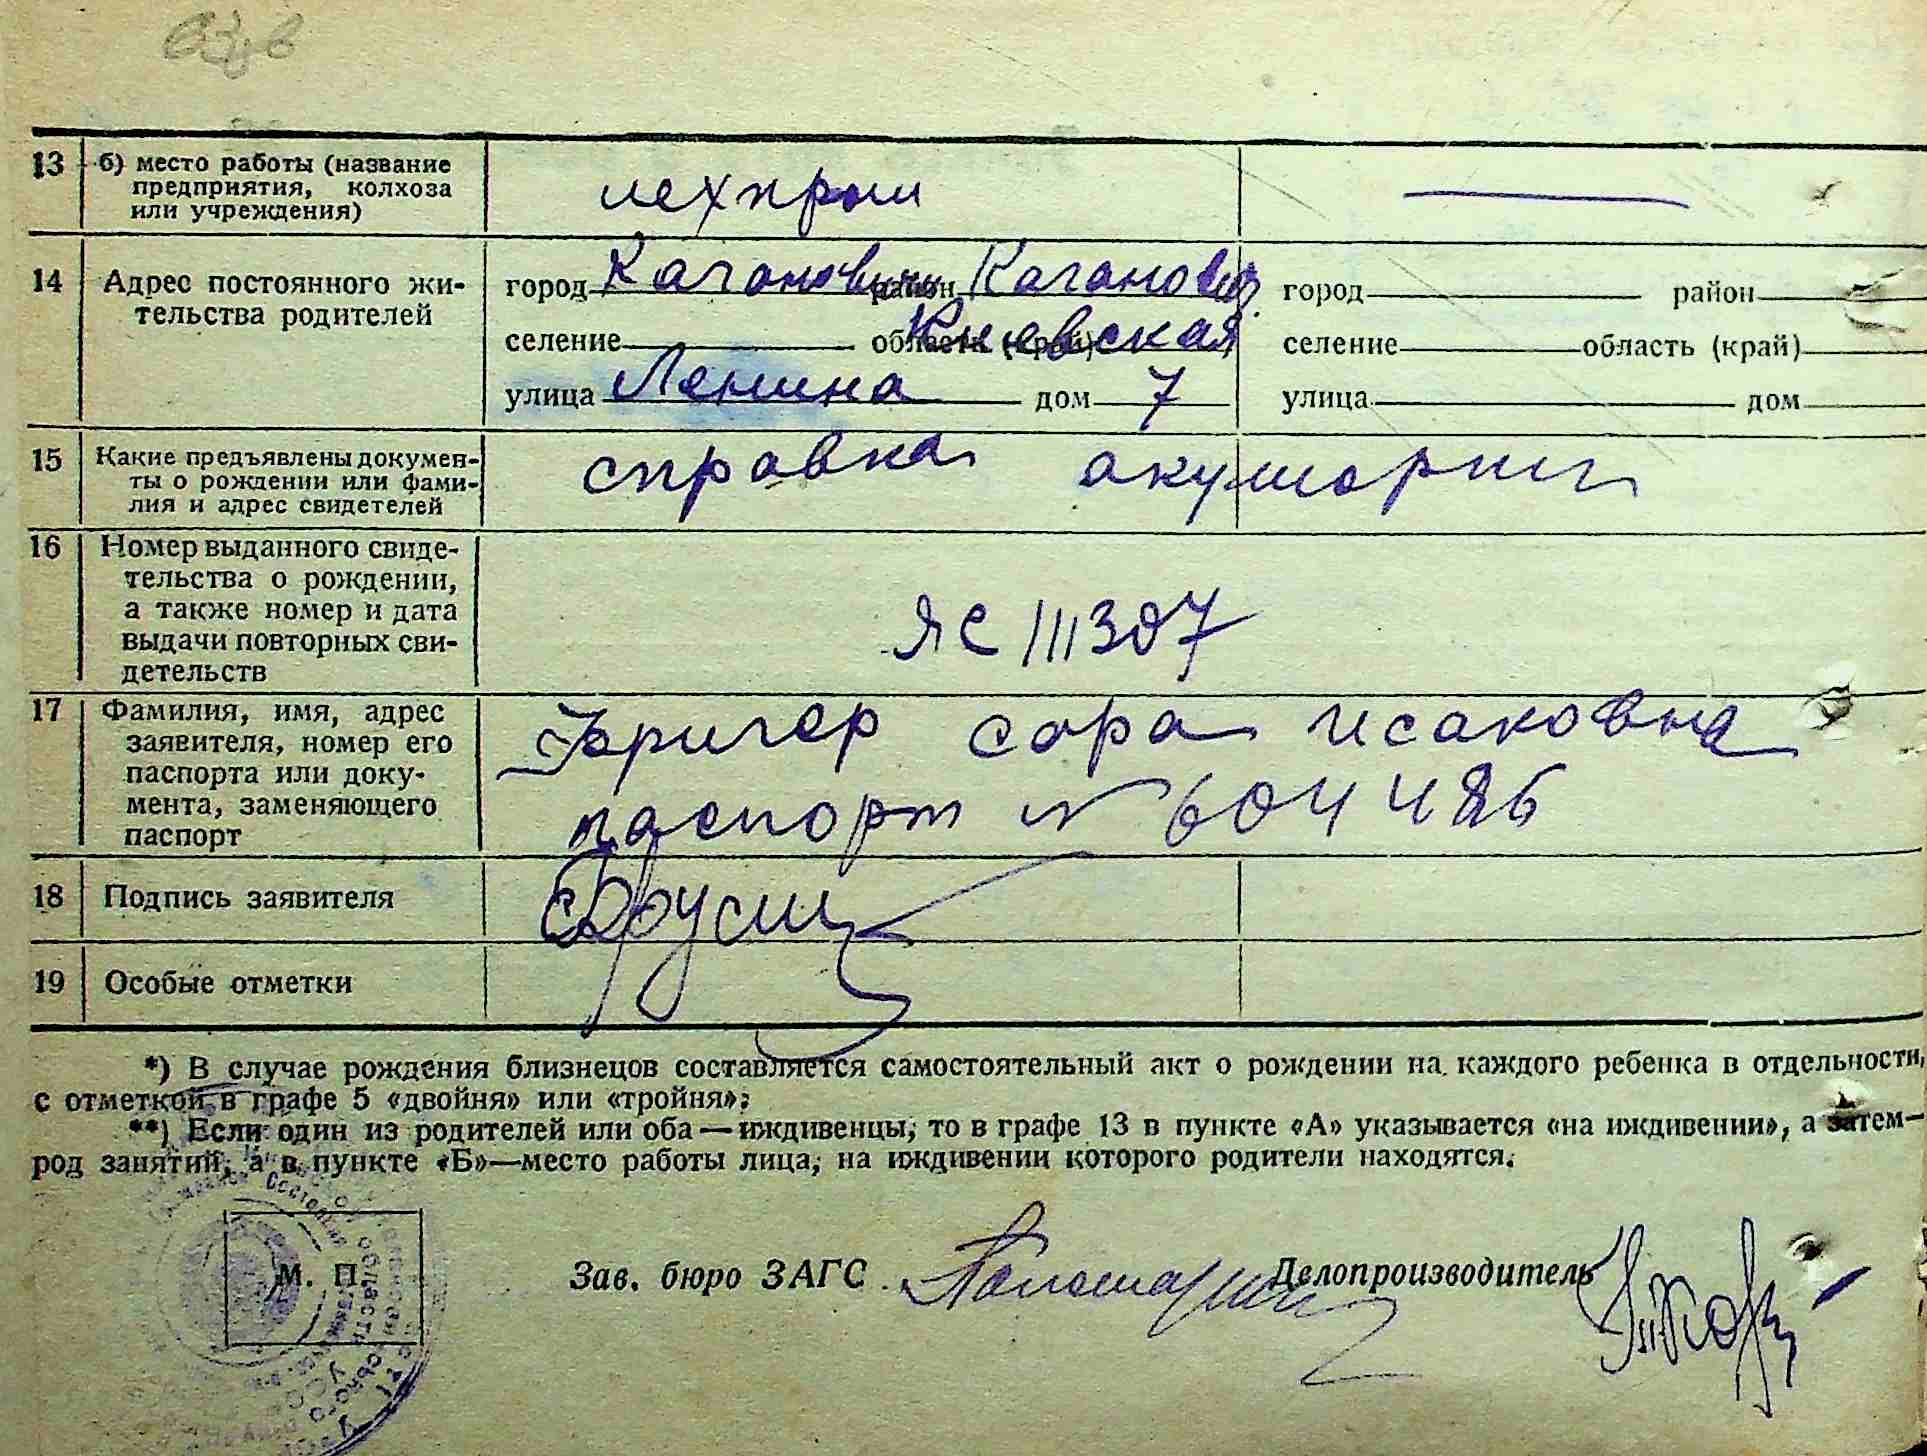 13 б) место работы (название
предприятия, колхоза
или учреждения)
лехпром
14 Адрес постоянного жи-
тельства родителей
город Каганович район Каганович город район
селение область (край) Киевская селение область (край)
улица Ленина дом 7 улица дом
15 Какие предъявлены докумен-
ты о рождении или фами-
лия и адрес свидетелей
справка акушорки
16 Номер выданного свиде-
тельства о рождении,
а также номер и дата
выдачи повторных сви-
детельств
ЯС 111307
17 Фамилия, имя, адрес
заявителя, номер его
паспорта или доку-
мента, заменяющего
паспорт
сара исаковна
паспорт № 604486
18 Подпись заявителя
19 Особые отметки
*) В случае рождения близнецов составляется самостоятельный акт о рождении на каждого ребенка в отдельности,
с отметкой в графе 5 «двойня» или «тройня»;
**) Если один из родителей или оба—иждивенцы, то в графе 13 в пункте «А» указывается «на иждивении», а затем—
род занятий, а в пункте «Б»—место работы лица, на иждивении которого родители находятся.
М. П.
Зав. бюро ЗАГС Делопроизводитель